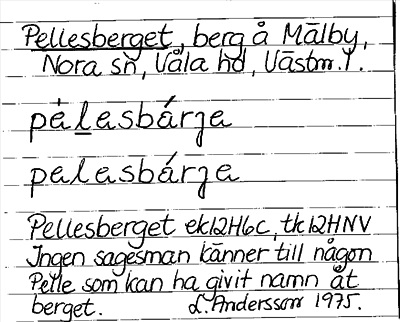 Pellesberget, berg å Mälby,
Nora sn, Våla hd, Västm. l.
pȧlasbárȷa
palasbárȷa
Pellesberget ek12H6c, tk12HNV
Ingen sagesman känner till någon
Pelle som kan ha givit namn åt
berget. L. Andersson 1975.